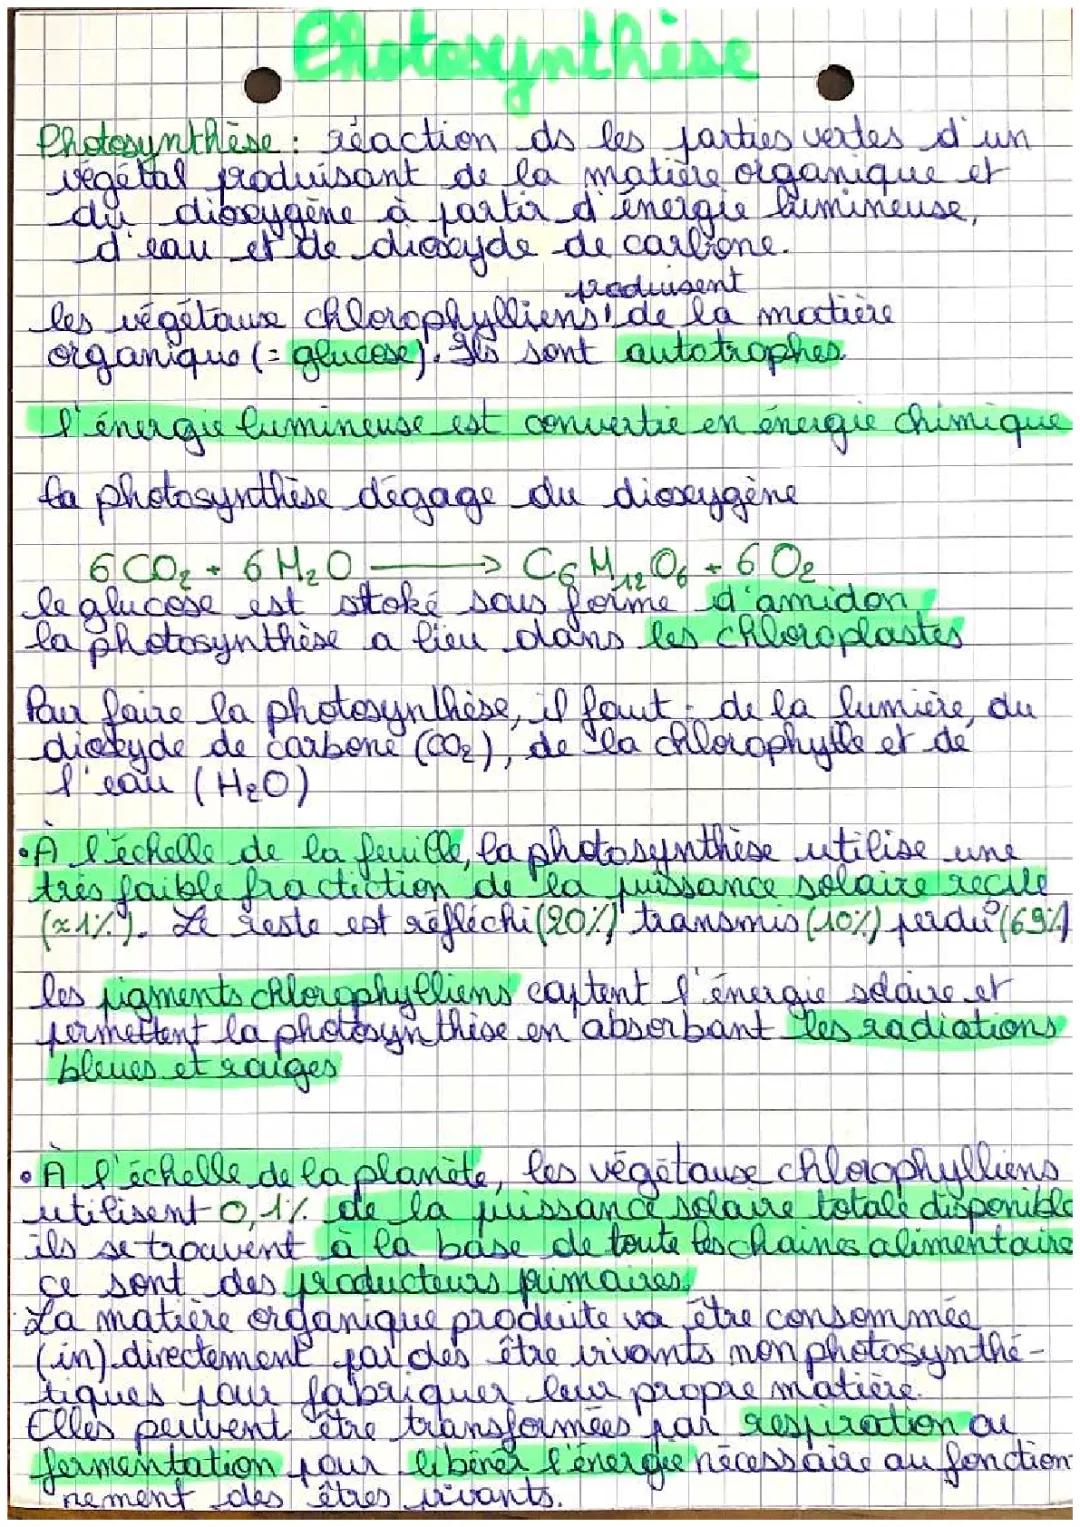 Photosynthèse
Photosynthèse : réaction ds les parties vertes d'un
végétal produisant de la matière organique et
du dioxygène à partir d'énergie lumineuse,
d'eau et de dioxyde de carbone.
produisent
les végétaux chlorophylliens de la matière
organique (= glucose). Ils sont autotrophes
l'énergie lumineuse est convertie en énergie chimique
la photosynthèse dégage du dioxygène
6 CO₂ + 6 H₂O → C₆H₁₂O₆ + 6 O₂
le glucose est stoké sous forme d'amidon
la photosynthèse a lieu dans les chloroplastes
Pour faire la photosynthèse, il faut : de la lumière, du
dioxyde de carbone (CO₂), de la chlorophylle et de
l'eau (H₂O)
• À l'échelle de la feuille, la photosynthèse utilise une
très faible fractiction de la puissance solaire reçue
(≈1%). Le reste est réfléchi (20%) transmis (10%) perdu (69%)
les pigments chlorophylliens captent l'énergie solaire et
permettent la photosynthèse en absorbant les radiations
bleues et rouges
• À l'échelle de la planète, les végétaux chlorophylliens
utilisent 0,1% de la puissance solaire totale disponible
ils se trouvent à la base de toute les chaines alimentaire
ce sont des producteurs primaires.
La matière organique produite va être consommée
(in)directement par des être vivants non photosynthé-
tiques pour fabriquer leur propre matière.
Elles peuvent être transformées par respiration ou
fermentation pour libérer l'énergie nécessaire au fonction
nement des êtres vivants.